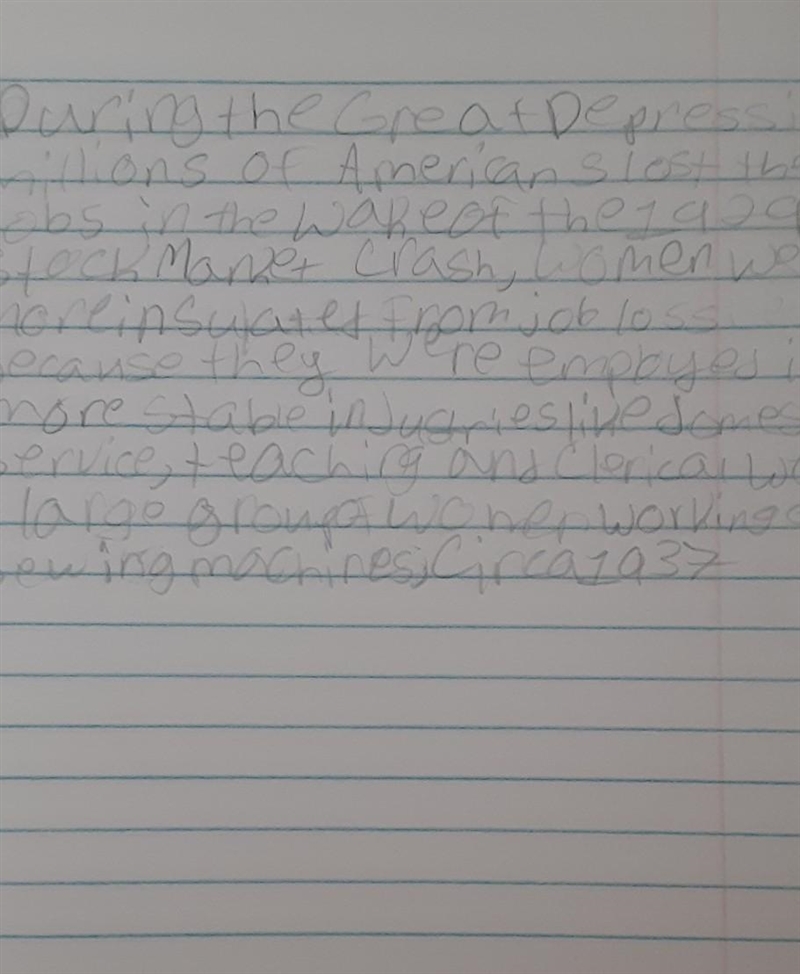 During the Great Depressi
millions of Americans lost the
obs in the wake of the 1929
stock Market Crash, Women we
more insulated from job loss
ecause they were employes i
more stable industries like domes
service, teaching and Clerical wo
large group of Women working o
ewing machines, Circa 1937